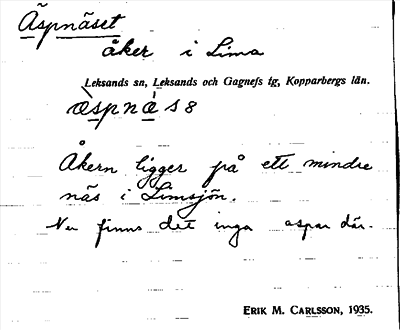 Äspnäset
åker i Lima
Leksands sn, Leksands och Gagnefs tg, Kopparbergs län.
æ̀spnæ̀s8
Åkern ligger på ett mindre
näs i Limsjön.
Nu finns det inga aspar där.
ERIK M. CARLSSON, 1935.